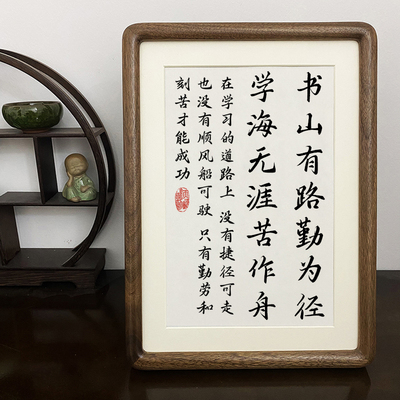 书山有路勤为径
学海无涯苦作舟
在学习的道路上 没有捷径可走
也没有顺风船可驶 只有勤劳和
刻苦才能成功